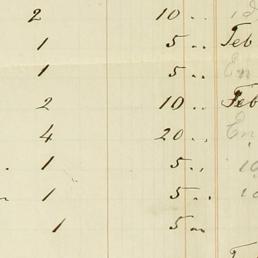 2 10 ..
1 5 .. Feb
1 5 .. En
2 10 .. Feb
4 20 .. En
1 5 ..
1 5 ..
1 5 ..